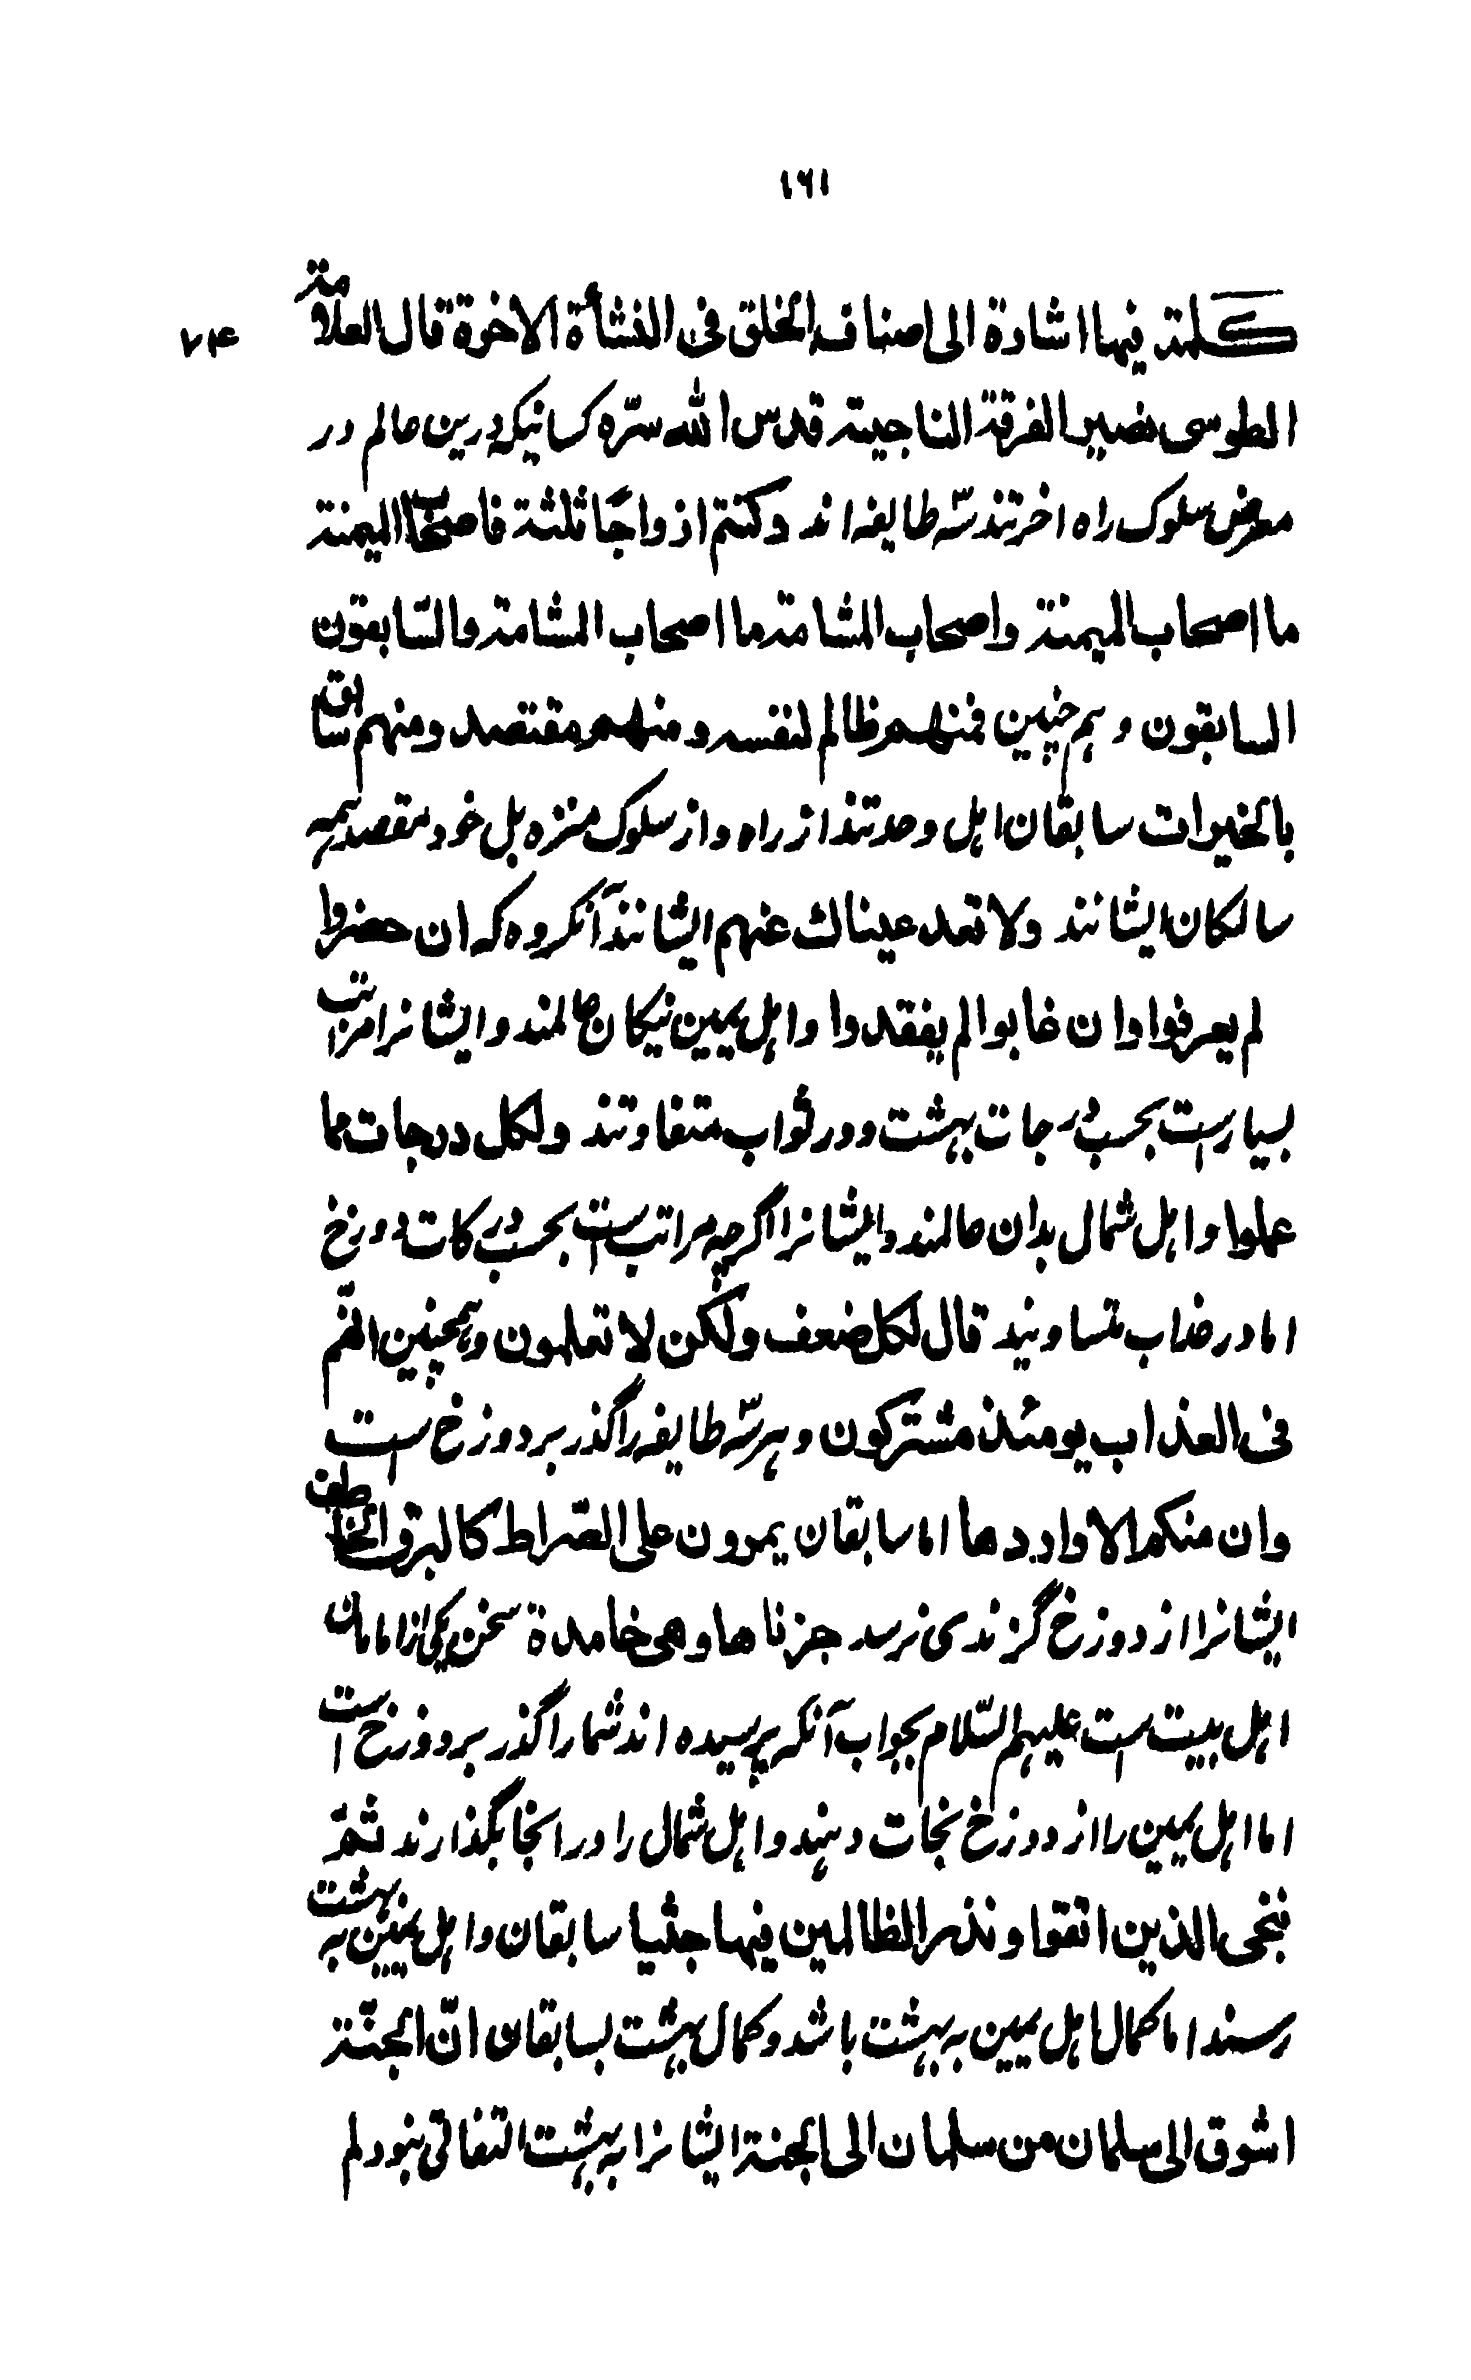 ۱۶۱
۷۴
كلمة فيها اشارة الى اصناف الخلق فى النشأة الاخرة قال العلامة
الطوسى نصير الفرقة الناجية قدس الله سرّه كسانيكه درين عالم در
معرض سلوك راه اخرتند سّه طايفه اند وكنتم ازواجًا ثلثة فاصحاب الميمنة
ما اصحاب الميمنة واصحاب المشامة ما اصحاب المشامة والسّابقون
السابقون وهم چنين فمنهم ظالم لنفسه ومنهم مقتصد ومنهم سابق
بالخيرات سابقان اهل وحدتند از راه واز سلوك منزه بل خود مقصد همه
سالكان ايشانند ولا تعد عيناك عنهم ايشانند آنگروه كه ان حضروا
لم يعرفوا وان غابوا لم يفقدوا واهل يمين نيكان عالمند وايشانرا مراتب
بسيارست بحسب درجات بهشت ودر ثواب متفاوتند ولكل درجات مما
عملوا واهل شمال بدان عالمند وايشانرا اگرچه مراتب است بحسب دركات دوزخ
اما در عذاب متساويند قال لكل ضعف ولكن لا تعلمون وهمچنين انّهم
فى العذاب يومئذ مشتركون وهر سّه طايفه را گذر بر دوزخ است
وان منكم الا واردها اما سابقان يمرون على الصّراط كالبرق الخاطف
ايشانرا از دوزخ گزندى نرسد جزناها وهى خامدة سخن يكى از امامان
اهل بيت است عليهم السّلام بجواب آنكه پرسيده اند شما را گذر بر دوزخ است
اما اهل يمين را از دوزخ نجات دهند واهل شمال را در انجا بگذارند ثمّ
ننجى الذين اتقوا ونذر الظالمين فيها جثيا سابقان واهل يمين به بهشت
رسند اما كمال اهل يمين به بهشت باشد وكمال بهشت بسابقان انّ الجنّة
اشوق الى سلمان من سلمان الى الجنة ايشانرا به بهشت التفاتى نبود لم